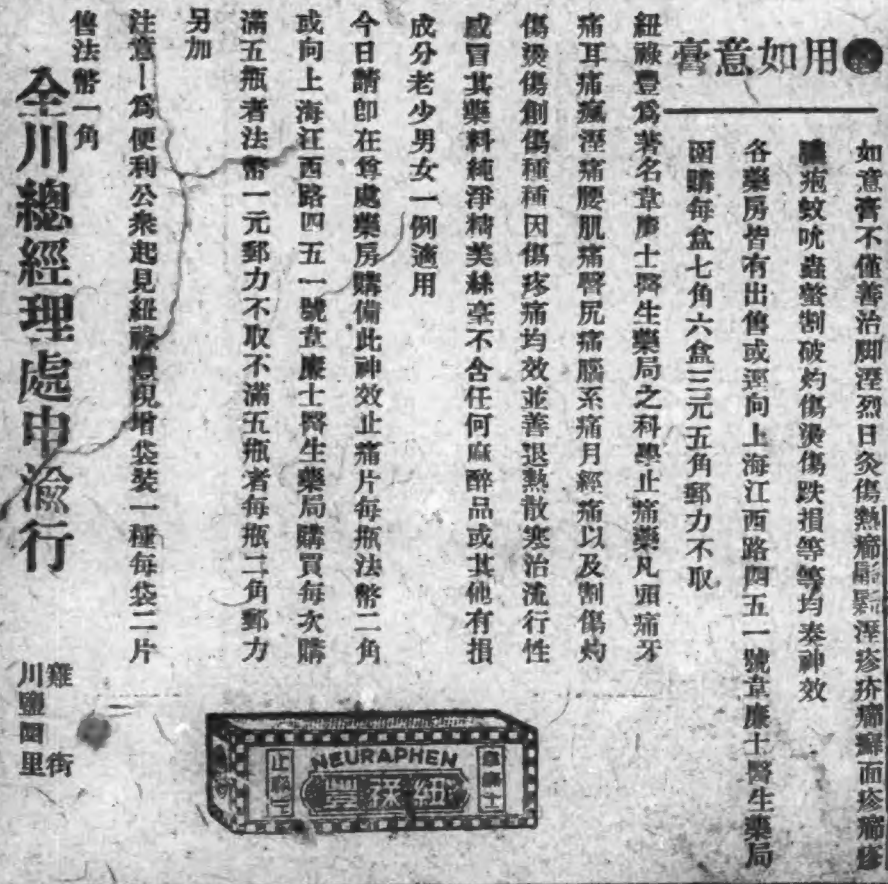 ●用如意膏
如意膏不僅善治脚溼烈日灸傷熱癤溼疹疥癬面疹
疱蚊吮蟲螫割破灼傷燙傷跌損等等均奏神效
各藥房皆有出售或逕向上海江西路四五一號韋廉士醫生藥局
函購每盒七角六盒三元五角郵力不取
紐祿豐爲著名韋廉士醫生藥局之科學止痛藥凡頭痛牙
痛耳痛瘋溼痛腰肌痛臀尻痛腦系痛月經痛以及割傷灼
傷燙傷創傷種種因傷疼痛均效並善退熱散寒治流行性
感冒其藥料純淨精美絲毫不含任何麻醉品或其他有損
成分老少男女一例適用
今日請卽在尊處藥房購備此神效止痛片每瓶法幣二角
或向上海江西路四五一號韋廉士醫生藥局購買每次購
滿五瓶者法幣一元郵力不取不滿五瓶者每瓶二角郵力
另加
注意—爲便利公衆起見紐祿豐現增袋裝一種每袋二片
售法幣一角
全川總經理處申渝行
雞街
川鹽四里
NEURAPHEN
紐祿豐
韋廉士
止